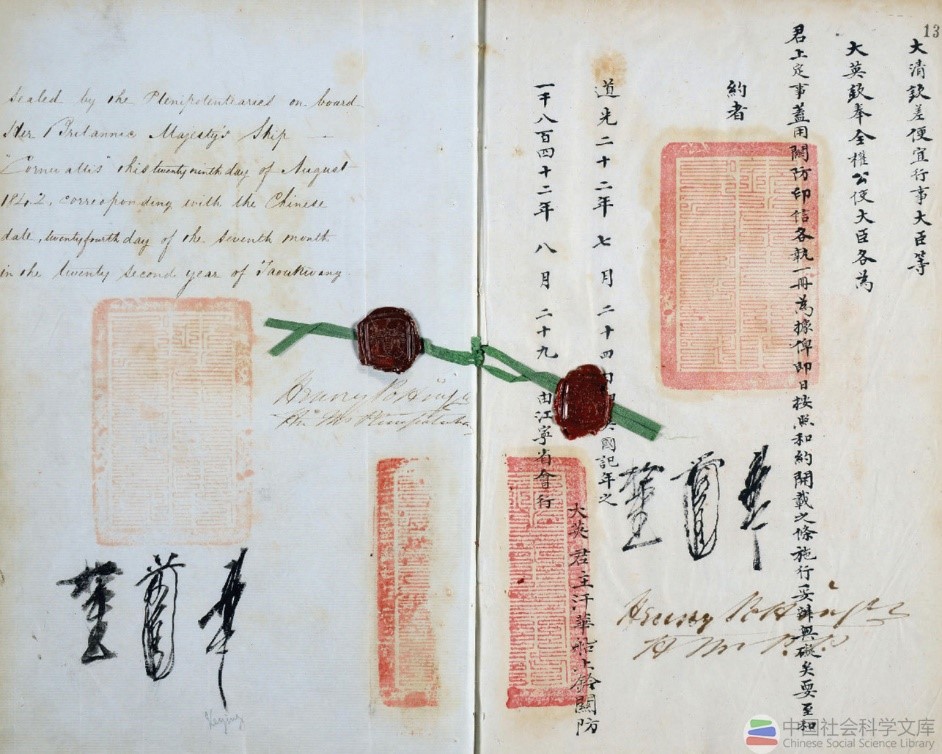 Sealed by the Plenipotentiaries on board
Her Britannic Majesty's Ship
"Cornwallis" this twenty ninth day of August
1842, corresponding with the Chinese
date, twenty fourth day of the Seventh month
in the twenty Second year of Taoukwang
Henry Pottinger
Keying
13
大清欽差便宜行事大臣等
大英欽奉全權公使大臣各為
君上定事蓋用關防印信各執一冊為據俾即日按照和約開載之條施行妥辦無礙矣要至和
約者
道光二十二年七月二十四日即英國記年之
一千八百四十二年八月二十九日由江寧省會行
大英君主汗華船上鈐關防
Henry Pottinger
中国社会科学文库
Chinese Social Science Library